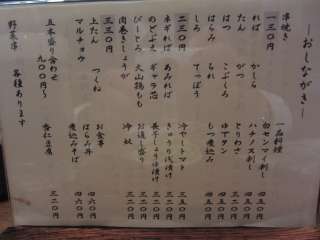 おしながき
串焼き
一三〇円
れば かしら
たん がつ
はつ こぶくろ
しろ てっぽう
はらみ
二三〇円
ネギれば あみれば
のどぶえ ギャラ芯
ぴーとろ 大山鶏もも
肉巻きしょうが
三三〇円
上たん つくね
マルチョウ
五本盛り合わせ
九〇〇円〜
野菜串 各種あります
一品料理
白センマイ刺し 四五〇円
ハチノス刺し 四五〇円
とりわさ 四五〇円
ゆでタン 四五〇円
もつ煮込み 四五〇円
冷やしトマト 三五〇円
きゅうり浅漬け 三二〇円
長芋しょうゆ漬け 三二〇円
お通し盛り 三二〇円
冷奴 三二〇円
お食事
はらみ丼 四六〇円
煮込みそば 四六〇円
杏仁豆腐 三二〇円